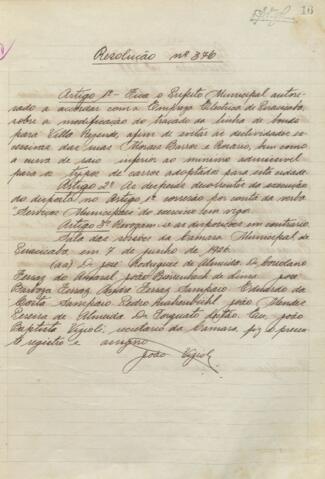 16
Resolução nº 376
Artigo 1º - Fica o Prefeito Municipal autori-
sado a accordar com a Empreza Electrica de Piracicaba,
sobre a modificação do traçado da linha de bonds
para Villa Rezende, afim de evitar as declividades ex-
cessivas das ruas Moraes Barros e Rosario, bem como
a curva de raio inferior ao minimo admissivel
para os typos de carros adoptados para esta cidade.
Artigo 2º As despezas decorrentes da execução
do disposto no Artigo 1º correrão por conta da verba
"Serviços Municipaes" do exercicio em vigor.
Artigo 3º Revogam-se as disposições em contrario
Sala das sessões da Camara Municipal de
Piracicaba, em 7 de junho de 1926.
(aa) Dr José Rodrigues de Almeida, Dr Coriolano
Ferraz do Amaral, João de Lima, 
Barboza Ferraz, Ferraz Sampaio, Eduardo da
Costa Sampaio, Pedro Krahenbühl, João Mendes
Pereira de Almeida, Dr Torquato Leitão. Eu, João
Baptista Vizioli, secretario da Camara, fiz o presen-
te registo e assigno
João Vizioli